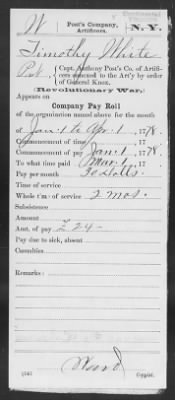 W Post's Company, Artificers. N.Y.
Timothy White
Pvt, Capt. Anthony Post's Co. of Artificers annexed to the Art'y by order of General Knox.
(Revolutionary War.)
Appears on
Company Pay Roll
of the organization named above for the month
of Jan 1 to Apr 1, 1778.
Commencement of time , 17
Commencement of pay Jan. 1, 1778.
To what time paid Mar. 1, 17
Pay per month 30 Dolls.
Time of service
Whole t'm of service 2 mos.
Subsistence
Amount
Amt. of pay £ 24-
Pay due to sick, absent
Casualties
Remarks:
Copyist.